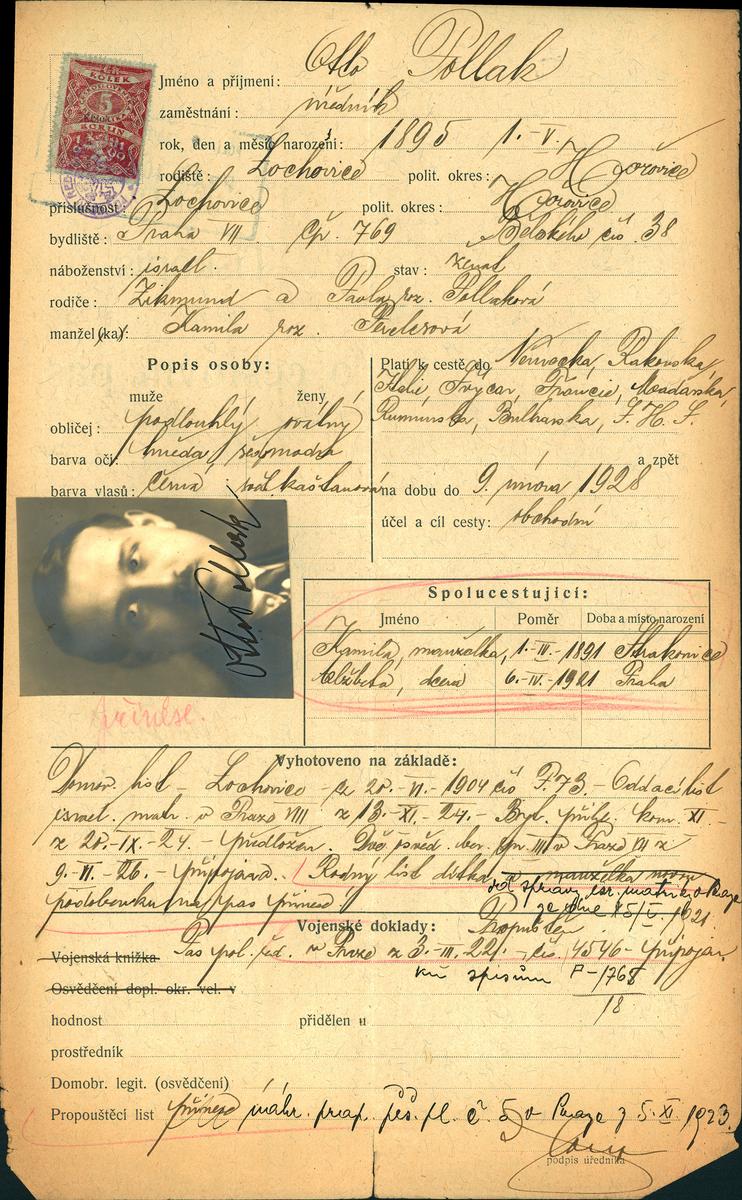 KOLEK
5
KORUN
Jméno a příjmení: Otto Pollak
zaměstnání: úředník
rok, den a měsíc narození: 1895 1.-V.
rodiště: Lochovice polit. okres: Hořovice
příslušnost: Lochovice polit. okres: Hořovice
bydliště: Praha VII čp. 769 Bělského čís 38
náboženství: israel. stav: ženat
rodiče: Zikmund a Pavla roz. Pollaková
manžel(ka): Kamila roz.
Popis osoby:
muže ženy
obličej: podlouhlý oválný
barva očí: hnědá, šedomodrá
barva vlasů: černá kaštanová
Platí k cestě do Německa, Rakouska,
Italie, Švýcar, Francie, Maďarska,
Rumunska, Bulharska, S. H. S.
a zpět
na dobu do 9. února 1928
účel a cíl cesty: obchodní
Otto Pollak
přinese.
Spolucestující:
Jméno Poměr Doba a místo narození
Kamila, manželka, 1.-IV.-1891 Strakonice
Alžběta, dcera 6.-IV.-1921 Praha
Vyhotoveno na základě:
Domov. list - Lochovice - z 20.-VI.-1904 čís P.73 - Oddací list
israel. matr. v Praze VIII z 13.-XI.-24.- Byt. přihl. kom. XI.-
z 20.-IX.-24.- předložen. Dvě osvěd. ber. spr. III v Praze VII z
9.-VI.-26.- připojena. Rodný list dítka, a manželka novou
podobenku na pas přinese.
dle zprávy isr. matriky v Praze
ze dne 15/V. 1921.
Vojenské doklady: Propuštěn
Vojenská knížka Pas pol. řed. v Praze z 3.-III.-221.- čís. 4546 - připojen
Osvědčení dopl. okr. vel. v ku spisům P-1768/18
hodnost přidělen u
prostředník
Domobr. legit. (osvědčení)
Propouštěcí list přinese náhr. prap. pěš. pl. č. 5 v Praze z 5. XI. 1923.
podpis úředníka